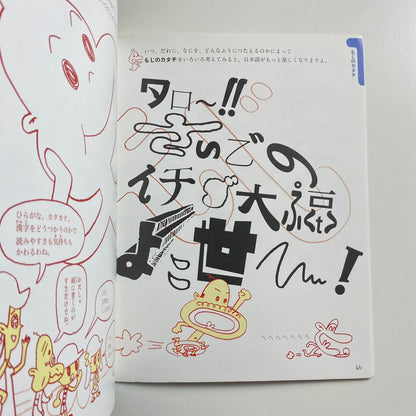 ひらがな、カタカナ、
漢字をどうつかうのかで
読みやすさも気持ちも
かわるわね。
いつ、だれに、なにを、どんなふうにつたえるのかによって
もじのカタチをいろいろ考えてみると、日本語がもっと楽しくなりますよ。
もじのカタチ
タロ〜!!
さいごの
イチゴ大福
よこ世〜!